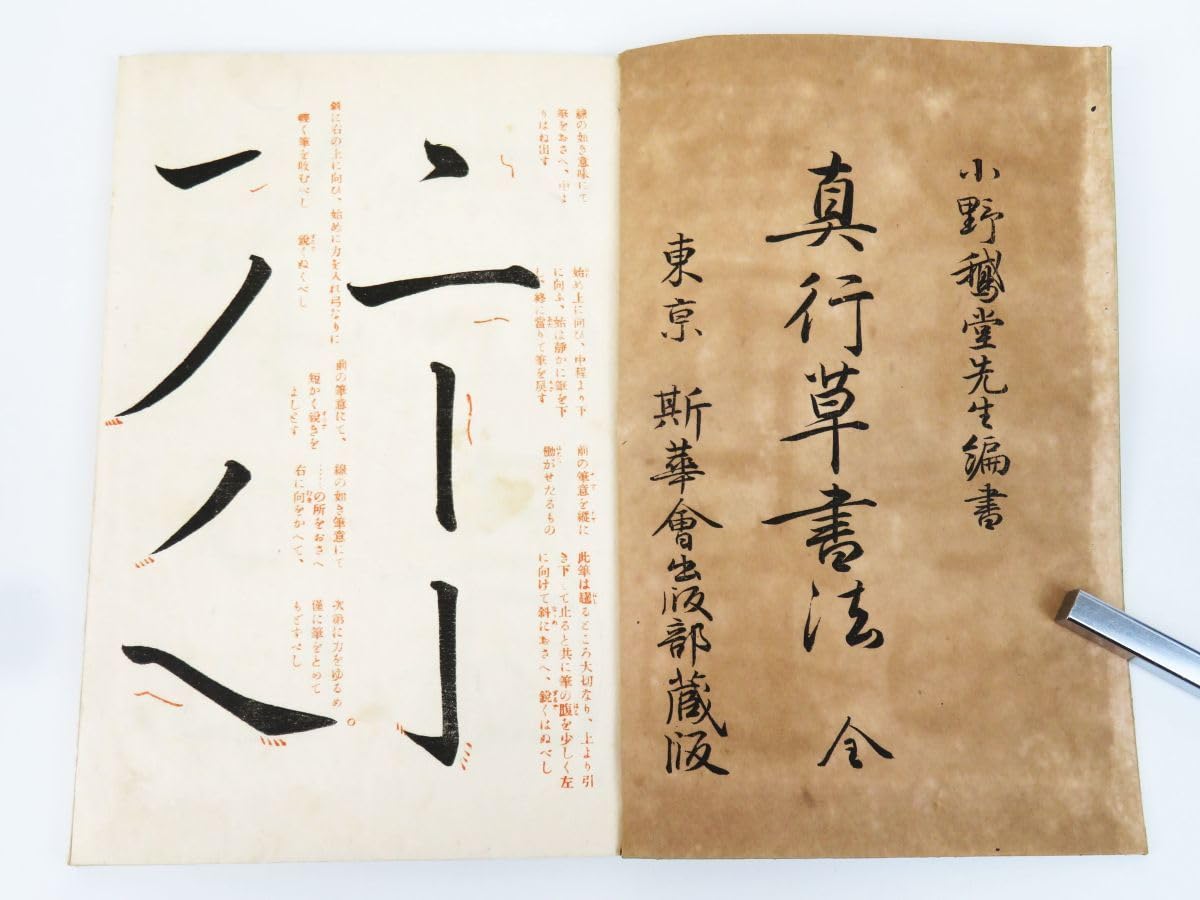 小野鵞堂先生編書
真行草書法 全
東京 斯華會出版部蔵版
線の如き意味にて
筆をおさへ、中は
りはね出す
始め上に向ひ、中程より下
に向ふ、始は靜かに筆を下
し、終に當りて筆を戻す
前の筆意を縱に
働かせたるもの
此筆は趯るところ大切なり、上より引
き下して止ると共に筆の腹を少しく左
に向けて斜におさへ、鋭くはぬべし
斜に右の上に向ひ、始めに力を入れ弓なりに
輕く筆を收むべし 鋭くぬくべし
前の筆意にて、
短かく鋭きを
よしとす
線の如き筆意にて
……の所をおさへ
右に向をかへて、
次第に力をゆるめ
僅に筆をとめて
もどすべし